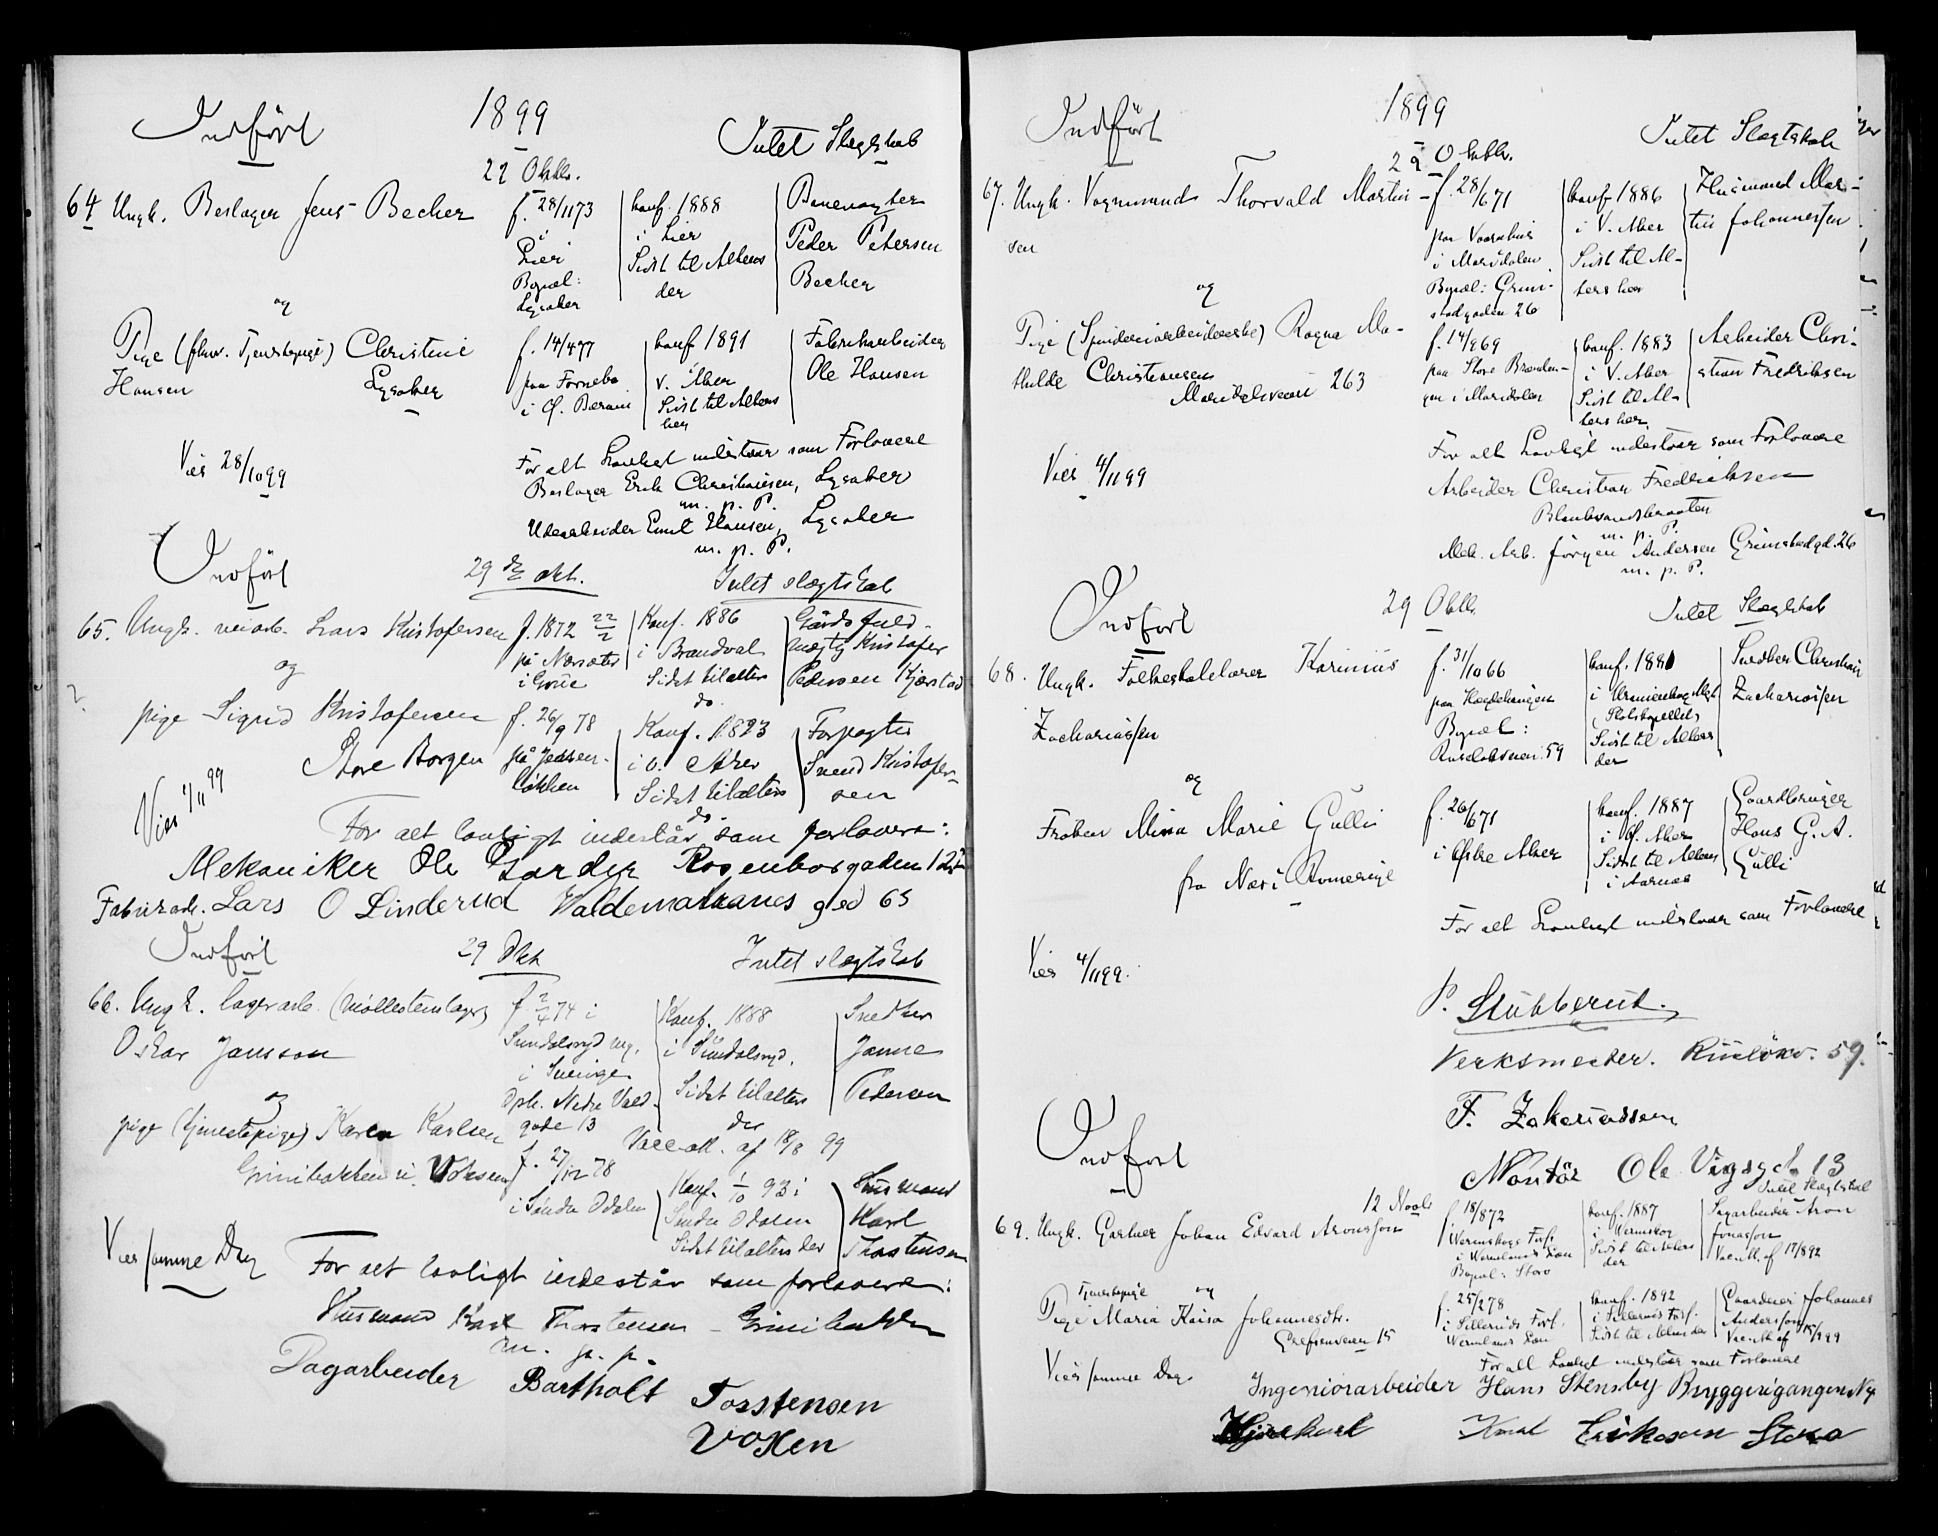 Indført 1899 Intet Slægtskab
22 Oktbr.
64 Ungk. Beslager Jens Becker f. 28/11 73 i Lier Bopæl: Lysaker konf. 1888 i Lier Sidst til Alters der Banevogter Peder Petersen Becker
og
Pige (fhv. Tjenestepige) Christine Hansen Lysaker f. 14/4 77 paa Fornebo i Ø. Bærum konf 1891 V. Aker Sidst til Alters her Fabrikarbeider Ole Hansen
Viet 28/10 99
For alt Lovligt indestaar som Forlovere
Beslager Erik Christiansen, Lysaker
m. p. P.
Udearbeider Emil Hansen, Lysaker
m. p. P.
Indført 29 de okt. Intet slægtskab
65. Ungk. veiarb. Lars Kristofersen f. 1872 22/2 på Næroset i Grue Konf. 1886 i Brandval Sidst tilalters do. Gårdsfuldmægtig Kristofer Pedersen Kjærstad
og
pige Sigrid Kristofersen Store Borgen f. 26/9 78 på Jensenløkken Konf. 1893 i v. Aker Sidst tilalters do. Forpagter Svend Kristofersen
Viet 1/11 99
For alt lovligt indestår som forlovere:
Mekaniker Ole Garder Rosenborgaden 12
Fabrikarb. Lars O Linderud Valdemarthranes gd 65
Indført 29 Okt Intet slægtskab
66. Ungk. lagerarb. (møllestenlager) Oskar Jansson f 2/4 74 i Sundalsryd mg. i Sverige Oph. Nedre Voldgade 13 Konf. 1888 i Sundalsryd. Sidst tilalters der Snedker Janne Pedersen
Vacc.att. af 18/8 99
og
pige (tjenestepige) Karen Karlsen Grinibakken i Voksen f. 27/12 78 i Søndre Odalen Konf. 1/10 93 i Søndre Odalen Sidst tilalters der Husmand Karl Thostensen
Viet samme Dag
For alt lovligt indestår som forlovere:
Husmand Karl Thostensen - Grinibakken
m. p. p.
Dagarbeider Bartholt Torstensen
Voxen
Indført 1899 Intet Slægtskab
22 Oktbr.
67. Ungk. Vognmand Thorvald Martinsen f. 28/6 71 paa Vaaenhus i Maridalen Bopæl: Grimstadgaden 26 konf 1886 i V. Aker Sidst til Alters her Husmand Martin Johannessen
og
Pige (Spinderiarbeiderske) Ragna Mathilde Christiansen Maridalsveien 263 f. 14/9 69 paa Store Brændengen i Maridalen konf. 1883 i V. Aker Sidst til Alters her Arbeider Christian Fredriksen
Viet 4/11 99
For alt Lovligt indestaar som Forlovere
Arbeider Christian Fredriksen
Blankvandsbraaten
m. p. P.
Mek. Arb. Jørgen Andersen Grimstadgd. 26
m. p. P.
Indført 29 Oktbr. Intet Slægtskab
68. Ungk. Folkeskolelærer Karinius Zachariassen f. 31/10 66 paa Hægdehaugen Bopæl: Ruseløkveien 59 konf. 1881 i Uranienborg Mgh. (Slotskapellet) Sidst til Alters der Snedker Christian Zachariassen
og
Frøken Mina Marie Gulli fra Næs i Romerige f. 26/6 71 i Østre Aker konf. 1887 i Ø. Aker Sidst til Alters i Aarnæs Gaardbruger Hans G. A. Gulli
For alt Lovligt indestaar som Forlovere
Viet 4/11 99.
P. Stubberud.
Verksmester. Rusløkv. 59.
F. Zakariassen
Montør Ole Vigsgt. 13
Indført 12 Novbr Intet Slægtskab
69. Ungk. Gartner Johan Edvard Aronsson f. 18/8 72 Wermskogs Fors. i Wermlands Län Bopæl: Storo konf. 1887 i Wermskog Sidst til Alters der Sagarbeider Aron Jonasson Vac.att. af 17/8 92
og
Tjenestepige
Pige Maria Kaisa Johannesdtr. Grefsenveien 15 f. 25/2 78 i Sillerud's Fors. Wermlands Län konf. 1892 i Silleruds Fors. Sidst til Alters der Gaardeier Johannes Andersson Vac.att. af 15/9 99
Viet samme Dag
For alt Lovligt indestaar som Forlovere
Ingeniørarbeider Hans Stensby Bryggerigangen
Knut Eriksen Storo